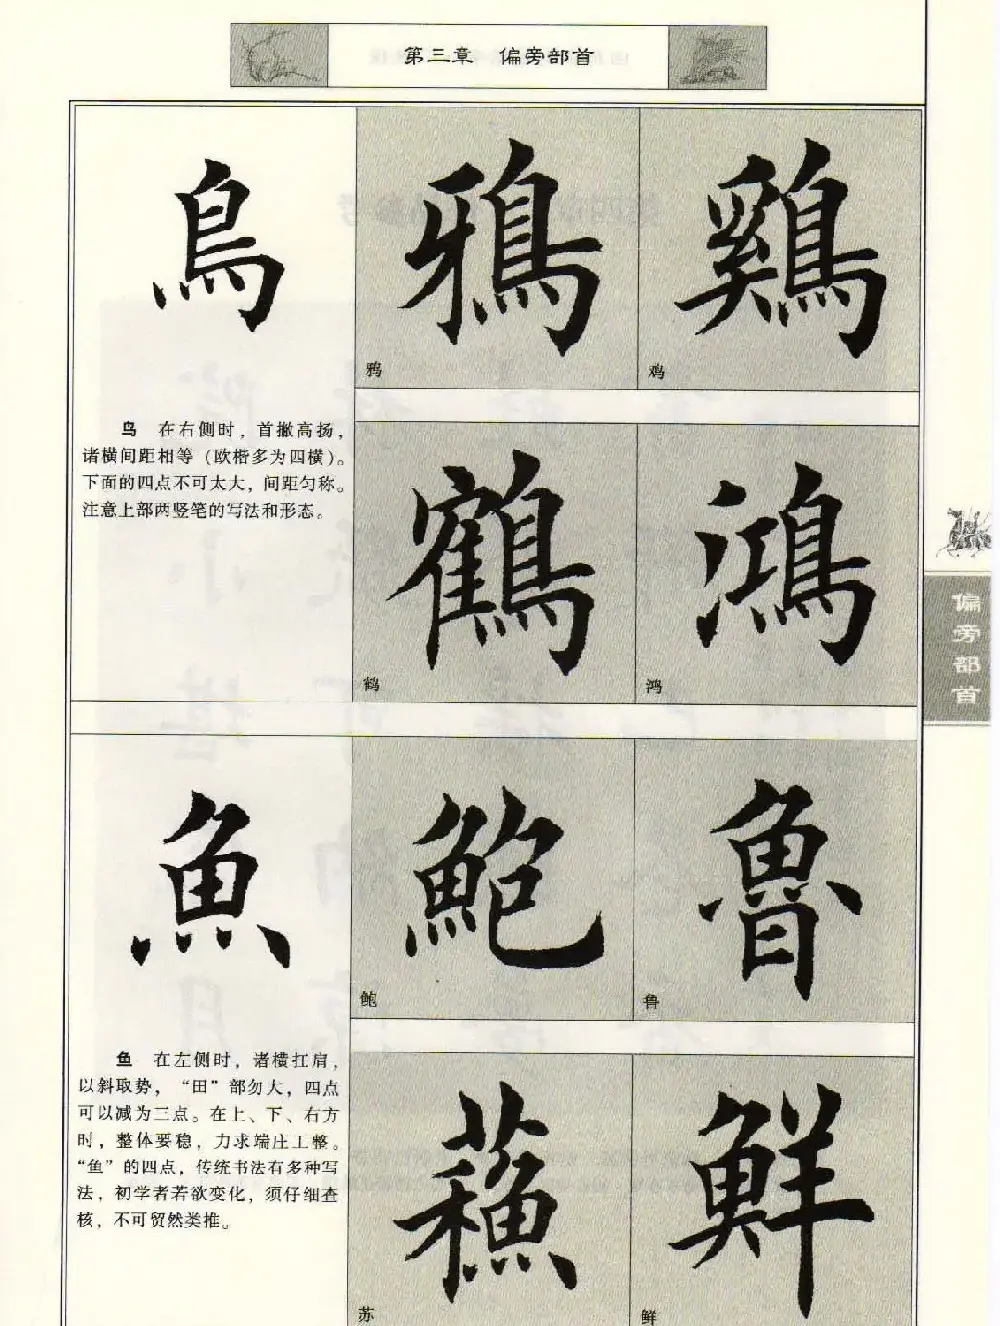 第三章　偏旁部首
鳥
鴉
鷄
鸦
鸡
鸟　在右侧时，首撇高扬，
诸横间距相等（欧楷多为四横）。
下面的四点不可太大，间距匀称。
注意上部两竖笔的写法和形态。
鶴
鴻
鹤
鸿
偏旁部首
魚
鮑
魯
鲍
鲁
鱼　在左侧时，诸横扛肩，
以斜取势，“田”部勿大，四点
可以减为三点。在上、下、右方
时，整体要稳，力求端庄工整。
“鱼”的四点，传统书法有多种写
法，初学者若欲变化，须仔细查
核，不可贸然类推。
蘇
鮮
苏
鲜